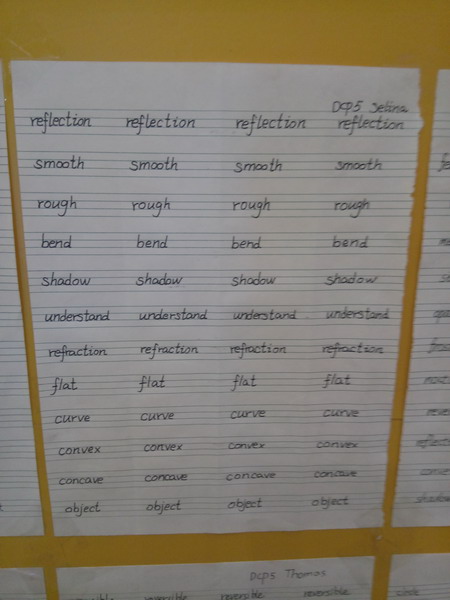 Dcp5 Selina
reflection reflection reflection reflection
smooth smooth smooth smooth
rough rough rough rough
bend bend bend bend
shadow shadow shadow shadow
understand understand understand understand
refraction refraction refraction refraction
flat flat flat flat
curve curve curve curve
convex convex convex convex
concave concave concave concave
object object object object
Dcp5 Thomas
reversible reversible reversible